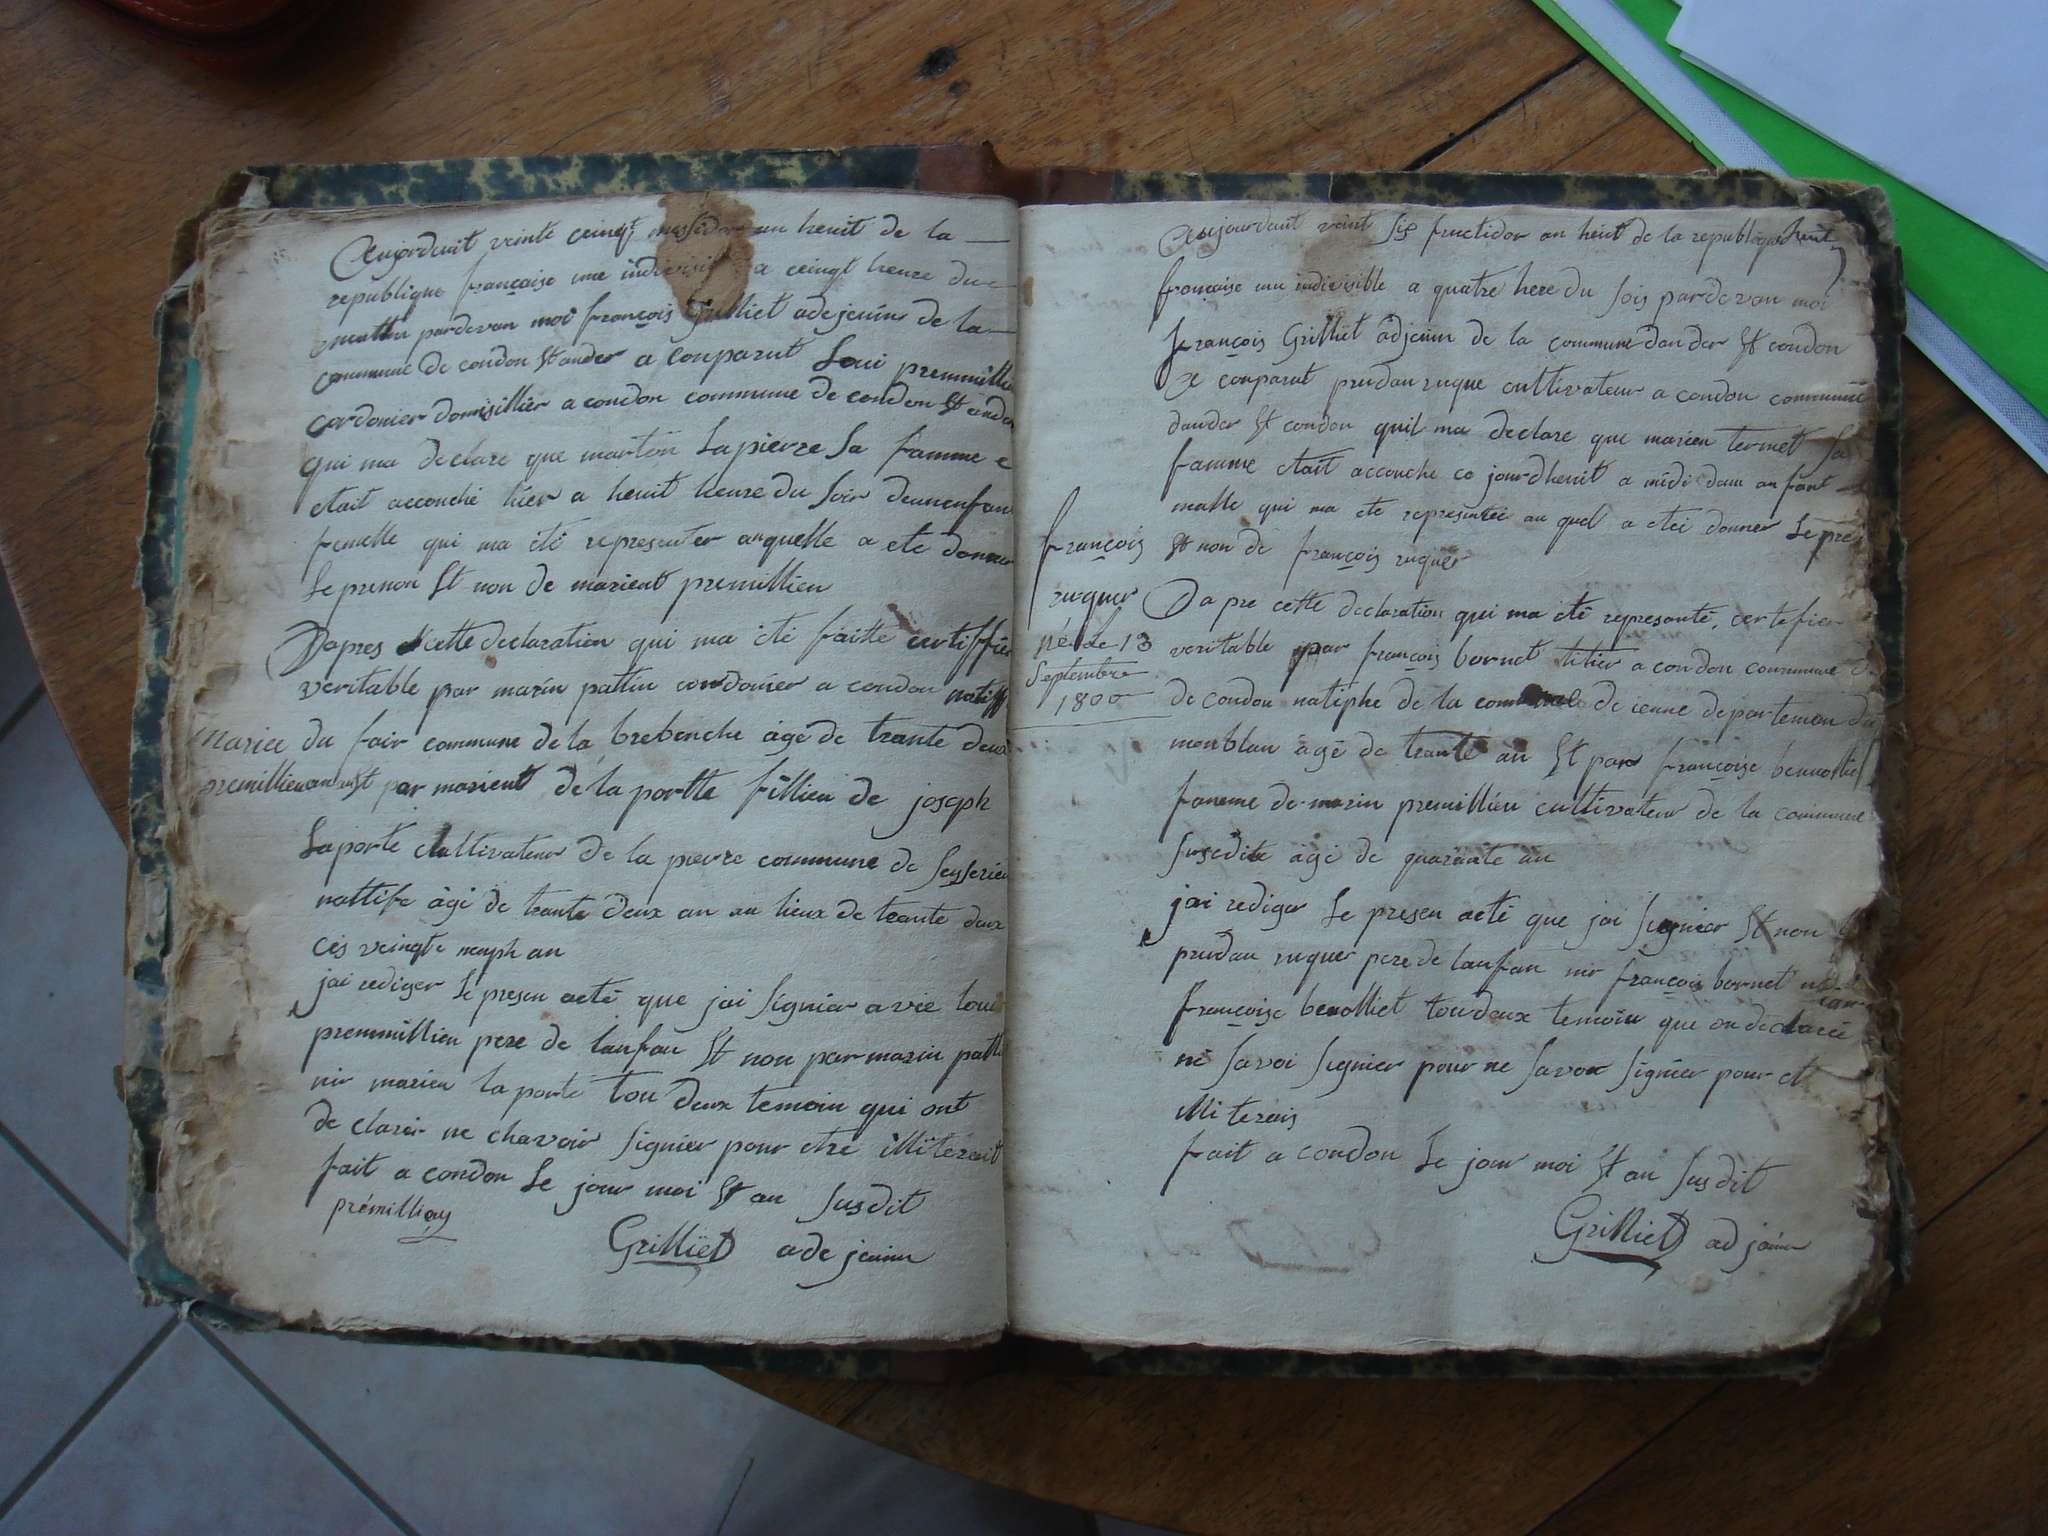 Aujorduit veinte ceingt messidor an heuit de la
republique française une indivisi a ceingt heure du
mattin pardevan moi françois Grilliet adejeuin de la
commune de condon St ander a conparut Loui premmillie
cordonier domisillier a condon commune de condon St ander
qui ma declare que martein Lapierre Sa famme
etait accouché hier a heuit heure du Soir deunenfan
femelle qui ma été representer auquelle a ete donner
Le prenon St non de marient premillieu
Dapres cette declaration qui ma été faitte certiffier
veritable par marin pattin cordonier a condon natiff
du fair commune de la brebenche agé de trante deux
Mariee
premillieu
an St par marient de la portte fillieu de joseph
Laporte cultivateur de la pierre commune de Seyserieu
nattife âgé de trante deux an au lieux de trante deux
cés veingte neuph an
jai rediger Le presen acté que jai Signiér avie loui
premmillieu pere de lanfan St non par marin patti
nir marieu la porté tou deux temoin qui ont
de clarér ne chavoir Signier pour etre illitérait
fait a condon Le jour moi St an Susdit
prémilliay
Grilliet adejeuin
Aujourdant veint Sis fructidor an heuit de la republique heuit
françoise une indivisible a quatre here du Sois pardevan moi
françois Grilliet adjeuin de la commune dander St condon
a conparut prudan ruque cultivateur a condon commune
dander St condon quil ma declare que marieu termet Sa
famme etait accouche ce jourdheuit a midi daun anfant
malle qui ma ete representée au quel a eteé donner Le pre
St non de françois ruquer
françois
ruquer
né Le 13
Septembre
1800
Da pre cette declaration qui ma été representé, certefier
veritable par françois bornet titier a condon commune
de condon natiphe de la commune de ienne departemen du
monblan âgé de tranté an St par françoise bennolliet
fameme de marin premillieu cultivateur de la commune
Susedite âgé de quarante an
jai rediger Le presen acté que jai Signier St non
prudan ruquer pere de lanfan nir françois bornet
françoise benolliet toudeux temoin que on declareé
né Savoi Signier pour ne Savoir Signiér pour et
illiterais
fait a condon Le jour moi St an Susdit
Grilliet adjoiin